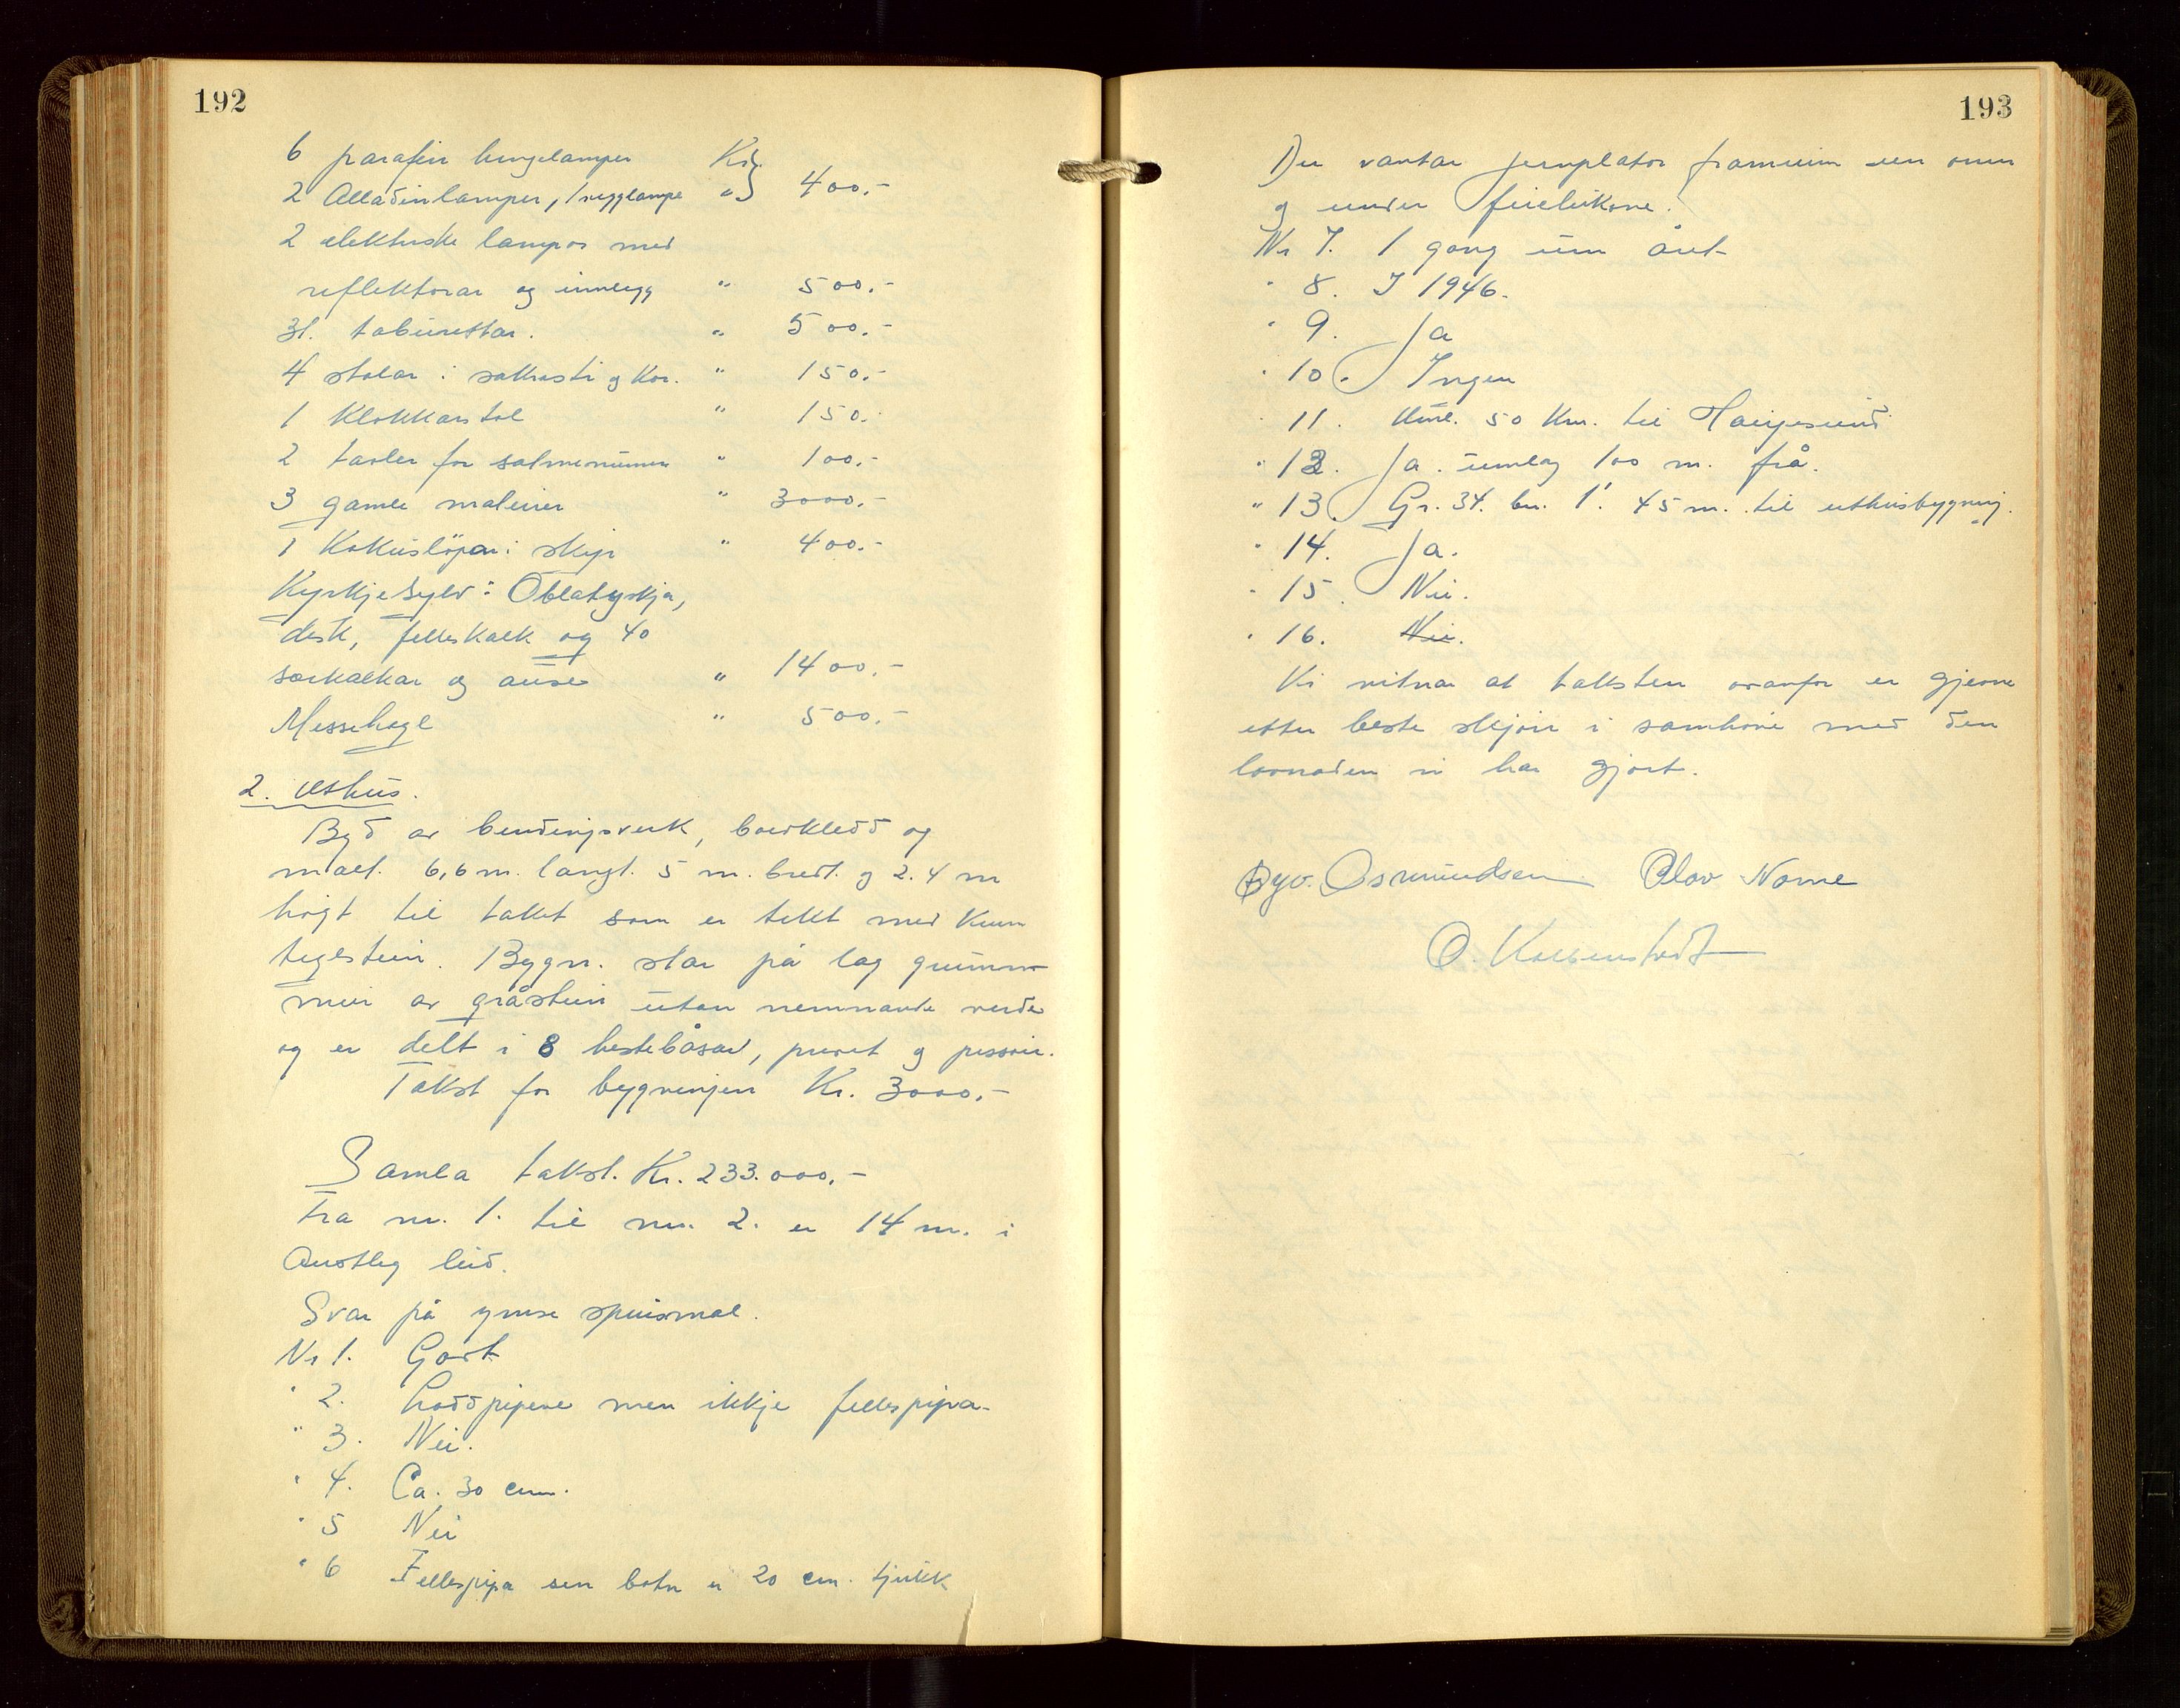 192
6 parafin hengelamper Kr.
2 Alladinlamper, 1 vegglampe " 400.-
2 elektriske lampor med
reflektorar og innlegg " 500.-
3 st. taburettar. " 500.-
4 stolar i sakresti og kor. " 150.-
1 Klokkarstol " 150.-
2 tavler for salmenummer " 100.-
3 gamle maleier " 3000.-
1 Kokuslöpar i skip " 400.-
Kyrkjesylv: Oblatyskja,
disk, felleskalk og 40
særkalkar og ause " 1400.-
Messehagl " 500.-
2. Uthus.
Bygd av bendingsverk, bordkledd og
malt. 6,6 m. langt. 5 m. bredt. og 2.4 m
högt til taket som er tekt med krum
teglstein. Bygn. star på lag grunn-
mur av gråstein utan nemnande verde
og er delt i 8 hestebåsar, privet og pissoir.
Takst for bygningen Kr. 3000.-
Samla takst. Kr. 233.000.-
Fra nr. 1. til nr. 2. er 14 m. i
Austleg leid.
Svar på ymse spursmal.
Nr 1. Godt
" 2. Loddpipene men ikkje fellespipa.
" 3. Nei.
" 4. Ca. 30 cm.
" 5 Nei
" 6 Fellespipa sin botn er 20 cm. tjukk
193
Der vantar jernplator framum ein omn
og under feielukone.
Nr 7. 1 gong um året
" 8. I 1946.
" 9. Ja
" 10. Ingen
" 11. Uml. 50 Km. til Haugesund
" 12. Ja. umlag 100 m. frå.
" 13. Gr. 34. bn. 1. 45 m. til uthusbygning.
" 14. Ja.
" 15. Nei.
" 16. Nei.
Vi vitnar at taksten ovanfor er gjerne
etter beste skjön i samhöve med den
lovnaden vi har gjort.
Osmundsen Olov Nome
O.